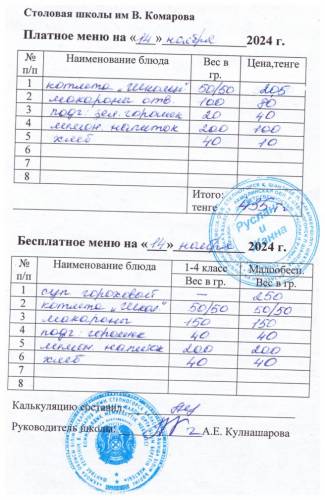 Столовая школы им В. Комарова
Платное меню на «14» ноября 2024 г.
№ п/п Наименование блюда Вес в гр. Цена,тенге
1 котлета "Школьн" 50/50 205
2 макароны отв. 100 80
3 подг. зел. горошек 20 40
4 лимон напиток 200 100
5 хлеб 40 10
6
7
8
Итого:
тенге 435
Руслан
и
Бесплатное меню на «14» ноября 2024 г.
№ п/п Наименование блюда 1-4 классе Малообесп.
Вес в гр. Вес в гр.
1 суп гороховый — 250
2 котлета "Школ" 50/50 50/50
3 макароны 150 150
4 подг. горошек 40 40
5 лимон напиток 200 200
6 хлеб 40 40
7
8
Калькуляцию составил:
Руководитель школы: А.Е. Кулнашарова